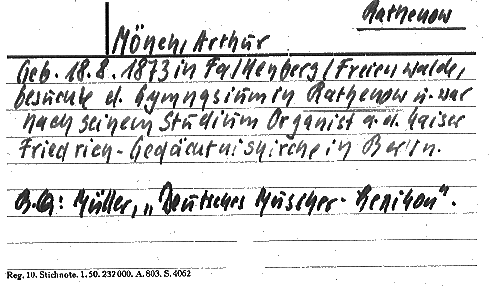 Rathenow
Mönch, Arthur
Geb. 18.8.1873 in Falkenberg/Freienwalde,
besuchte d. Gymnasium in Rathenow u. war
nach seinem Studium Organist a.d. Kaiser
Friedrich-Gedächtniskirche in Berlin.
B.Q: Müller, „Deutsches Musiker-Lexikon".
Reg. 10. Stichnote. 1. 50. 232 000. A. 803. S. 4062